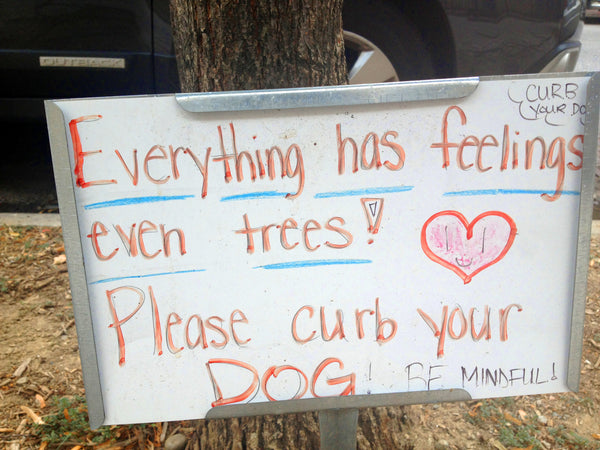 OUTBACK
CURB
YOUR DO
Everything has feelings
even trees!
Please curb your
DOG! BE MINDFUL!